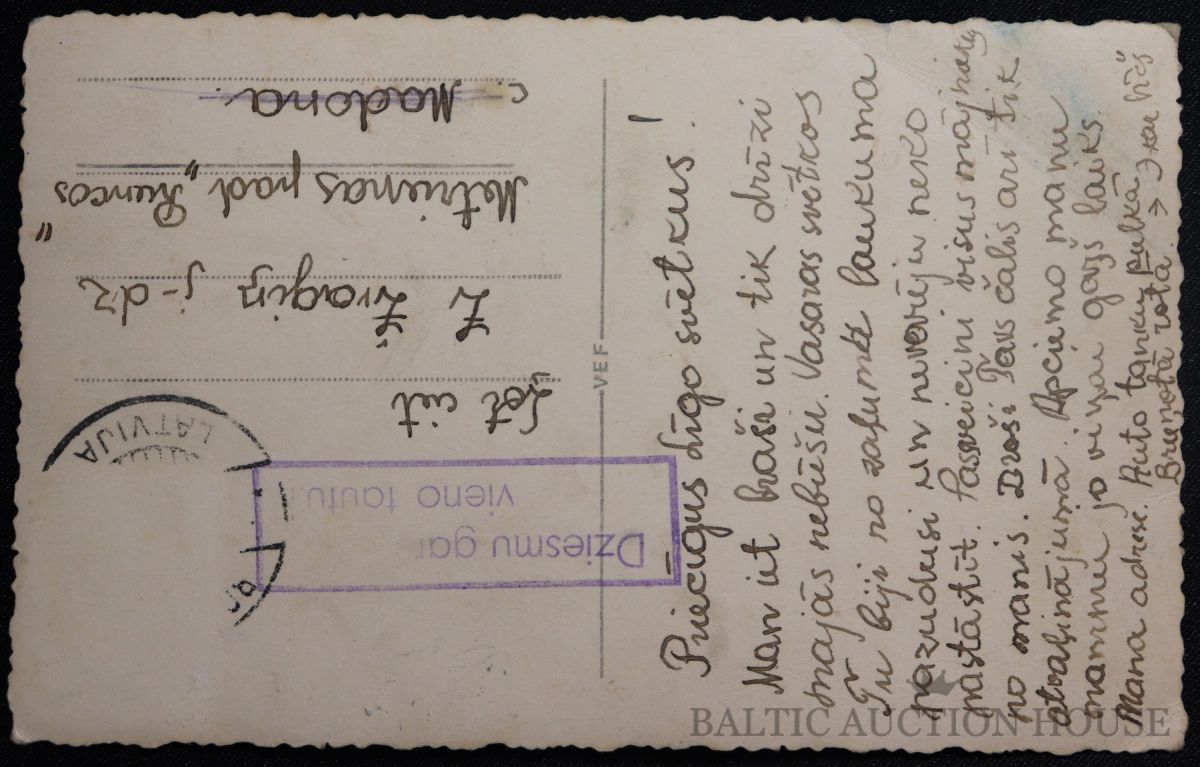 Priecīgus Līgo svētkus!
Man iet braši un tik drīzi
mājās nebūšu. Vasaras svētkos
Tu biji no zaļumbi laukuma
pazudusi un nevarēju neko
pastāstīt. Pasveicini visus mājiniekus
no manis. Droši Tavs čalis arī tik
atvaļinājumā. Apciemo manu
mammu jo viņai garšs laiks.
Mana adrese. Auto tanku pulkā
Bruņotā rotā. → Žkar
VEF
Ļot. ciet
Z. Žragiņ j-dz
Metrienas pag. „Runcos"
c. Madona.
LATVIJA
Dziesmu gar
vieno tautu
BALTIC AUCTION HOUSE